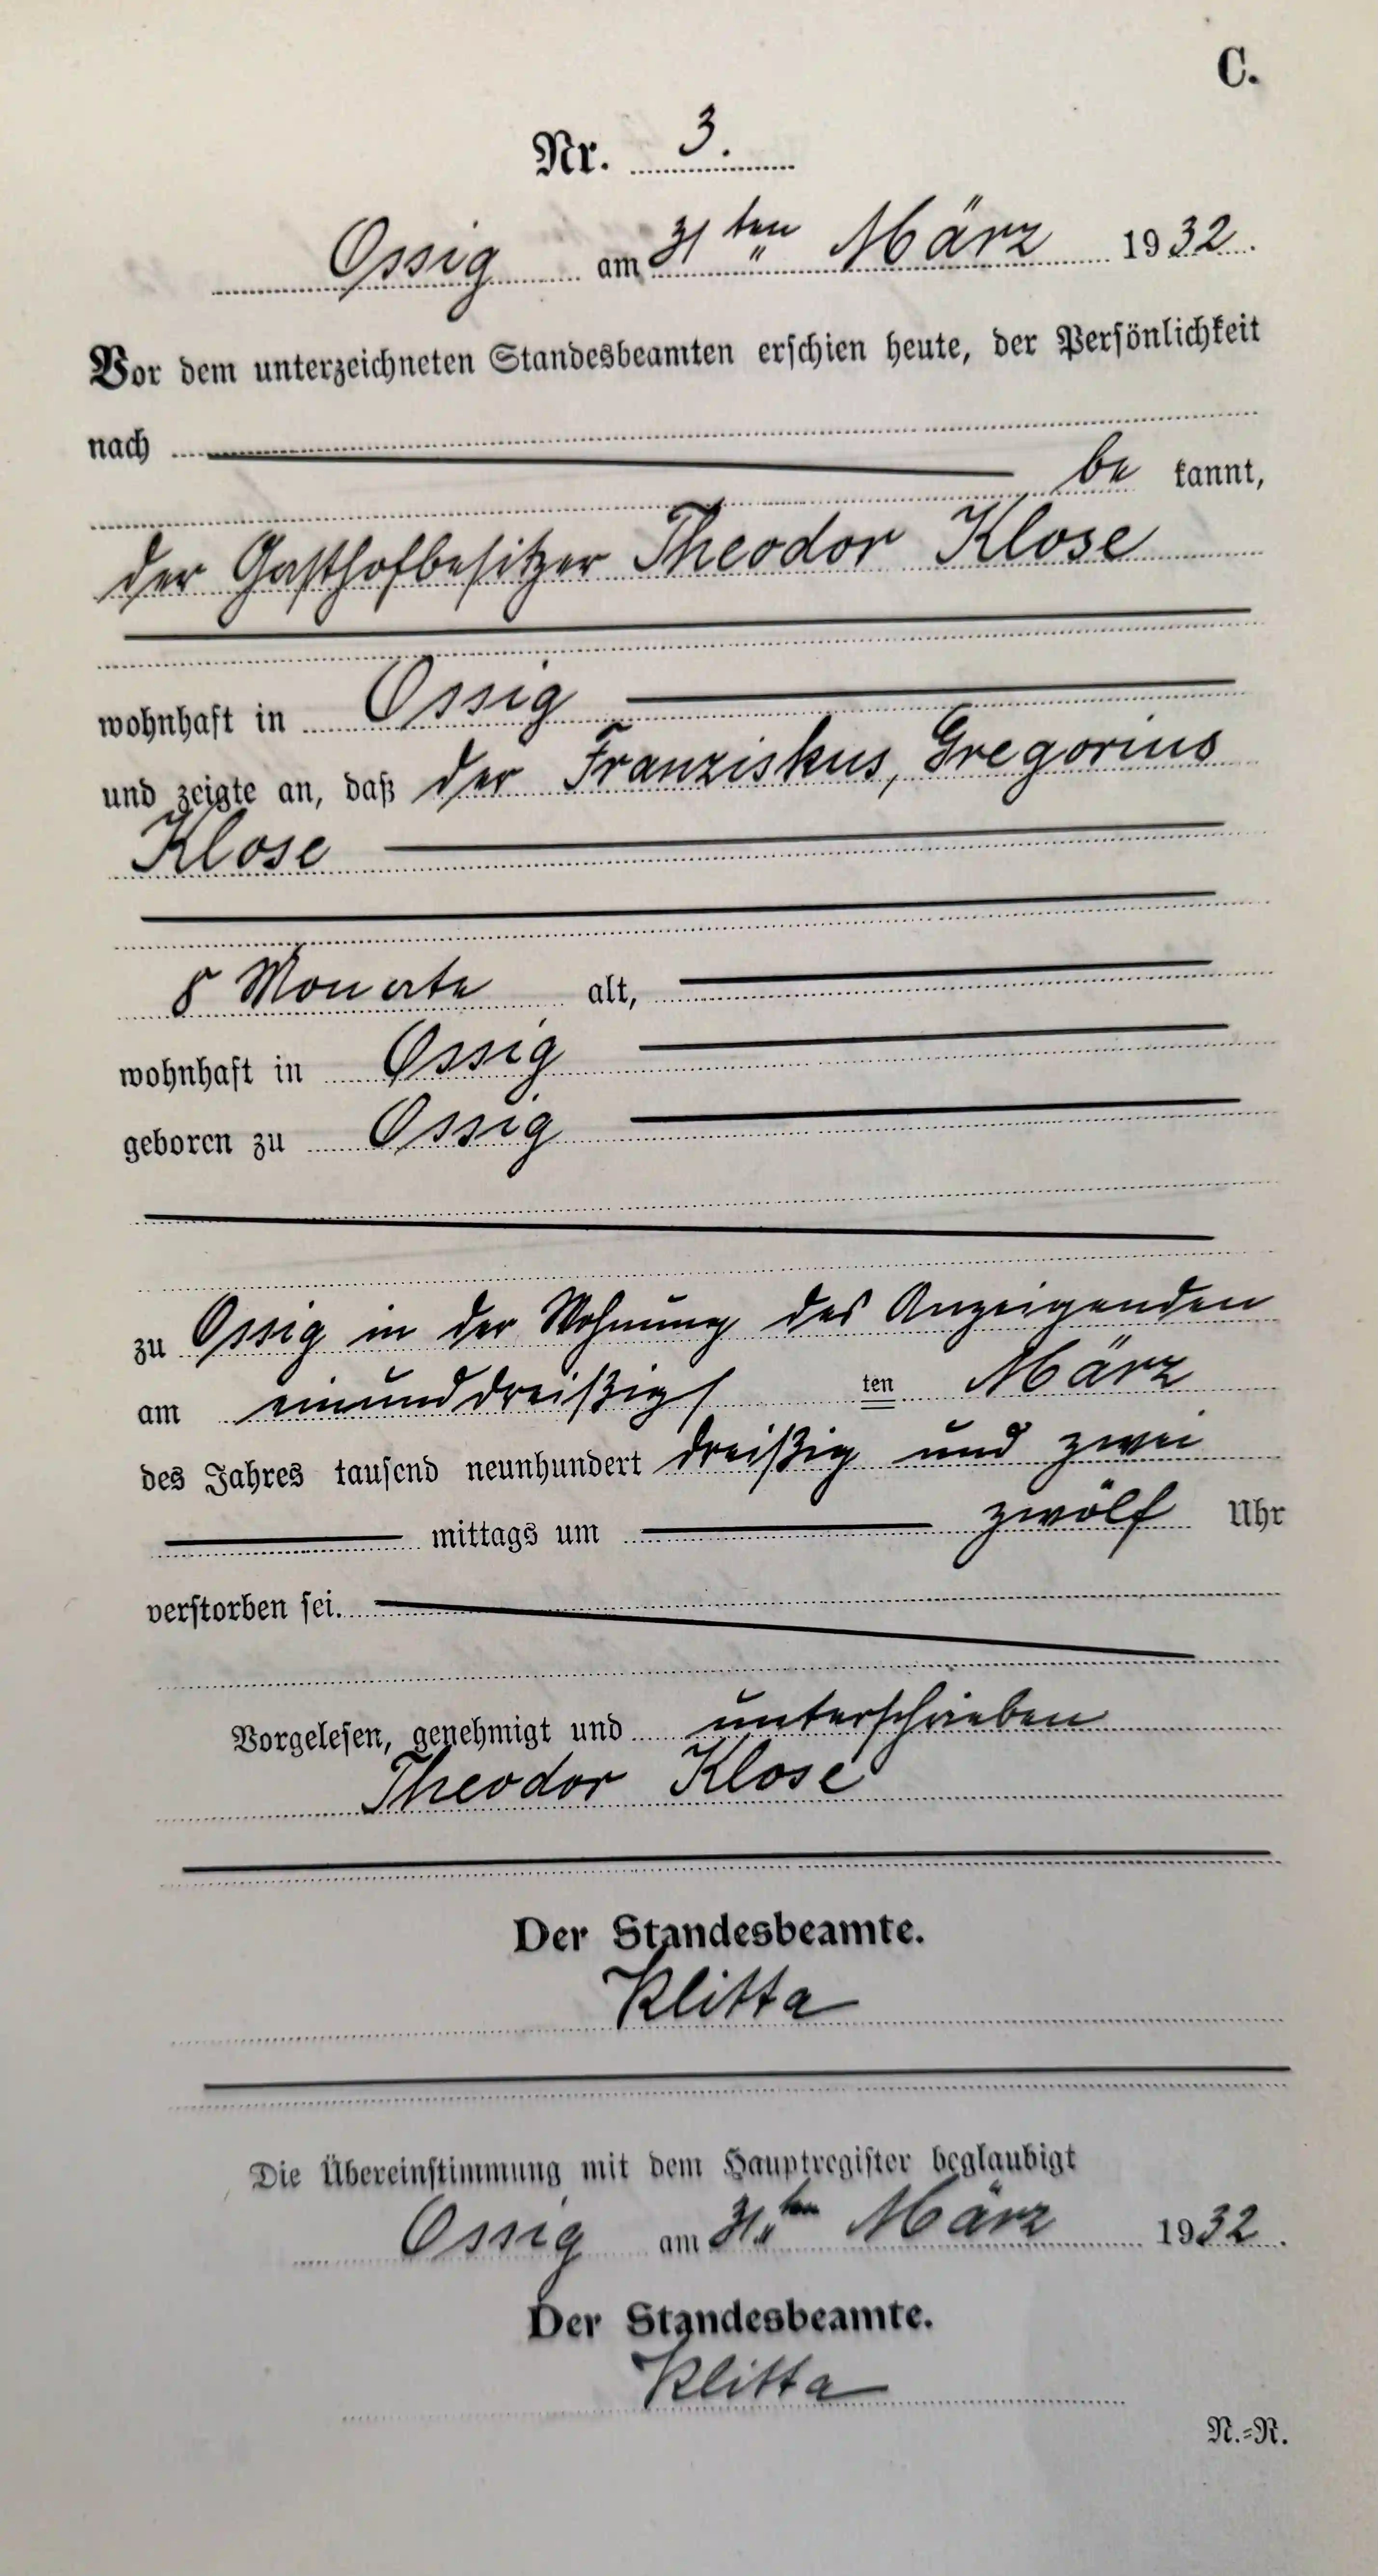 C.
Nr. 3.
Ossig am 31ten März 1932.
Vor dem unterzeichneten Standesbeamten erschien heute, der Persönlichkeit
nach
be kannt,
der Gasthofbesitzer Theodor Klose
wohnhaft in Ossig
und zeigte an, daß der Franziskus, Gregorius
Klose
8 Monate alt,
wohnhaft in Ossig
geboren zu Ossig
zu Ossig in der Wohnung des Anzeigenden
am einunddreißigs ten März
des Jahres tausend neunhundert dreißig und zwei
mittags um zwölf Uhr
verstorben sei.
Vorgelesen, genehmigt und unterschrieben
Theodor Klose
Der Standesbeamte.
Klitta
Die Übereinstimmung mit dem Hauptregister beglaubigt
Ossig am 31ten März 1932.
Der Standesbeamte.
Klitta
N.=R.